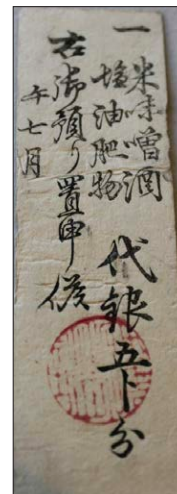 一 米味噌酒
塩油肥物
代銀五卜分
右御預り置申候
午七月